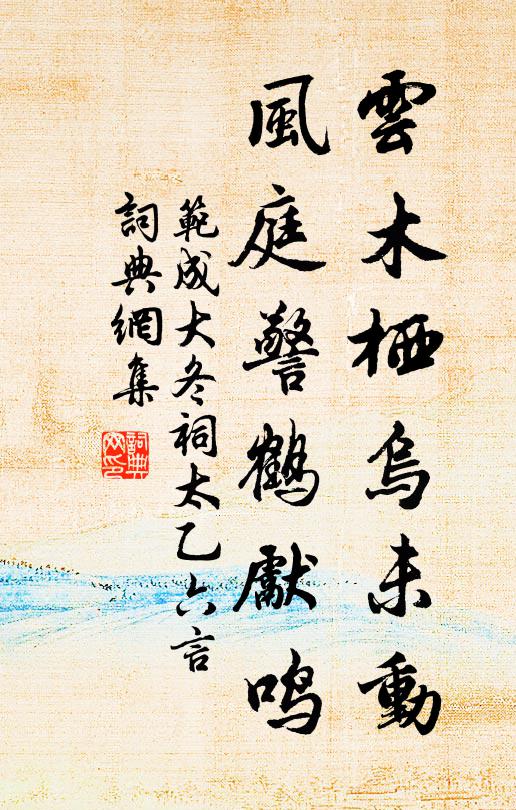 雲木栖烏未動
風庭警鶴獻鸣
範成大冬祠太乙六言
詞典網集
詞典网印